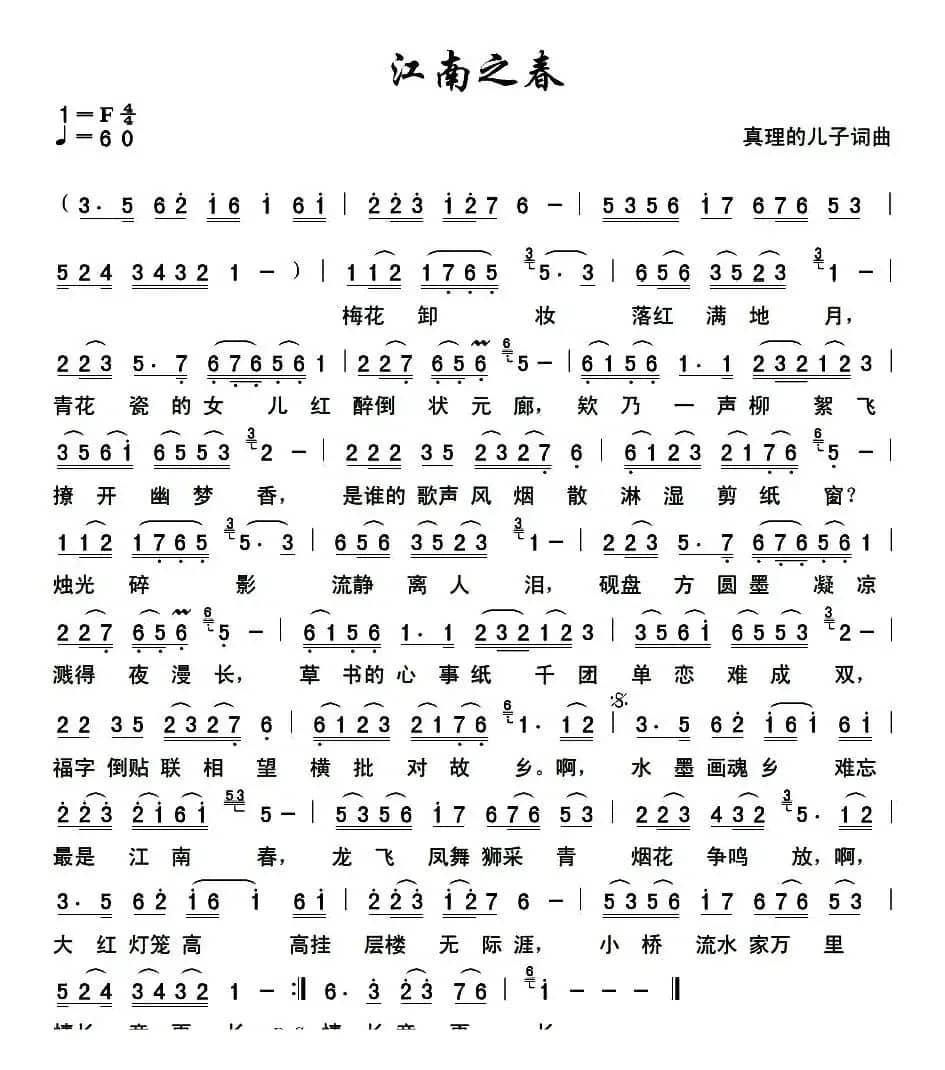 江南之春
1=F 4/4
♩=60
真理的儿子词曲
(3. 5 62 16 1 61 | 223 127 6 - | 5356 17 676 53 |
524 3432 1 - ) | 112 1765 5. 3 | 656 3523 1 - |
梅花 卸 妆 落红 满 地 月，
223 5. 7 67656 1 | 227 656 5 - | 6156 1. 1 232123
青花 瓷 的 女 儿 红 醉倒 状 元 廊，欸 乃 一 声 柳 絮 飞
3561 6553 2 - | 222 35 2327 6 | 6123 2176 5 - |
撩 开 幽 梦 香，是谁的 歌声 风 烟 散 淋 湿 剪 纸 窗？
112 1765 5. 3 | 656 3523 1 - | 223 5. 7 67656 1 |
烛光 碎 影 流静 离 人 泪，砚盘 方 圆 墨 凝 凉
227 656 5 - | 6156 1. 1 232123 | 3561 6553 2 - |
溅得 夜 漫 长，草 书 的 心 事 纸 千 团 单 恋 难 成 双，
22 35 2327 6 | 6123 2176 1. 12 | 3. 5 62 161 61 |
福字 倒贴 联 相 望 横 批 对 故 乡。啊，水 墨 画 魂 乡 难忘
223 2161 5 - | 5356 17 676 53 | 223 432 5. 12 |
最是 江 南 春，龙 飞 凤舞 狮采 青 烟花 争鸣 放，啊，
3. 5 62 16 1 61 | 223 127 6 - | 5356 17 676 53 |
大 红 灯笼 高 高挂 层楼 无 际 涯，小 桥 流水 家万 里
524 3432 1 - :‖ 6. 3 23 76 | 1 - - - ‖